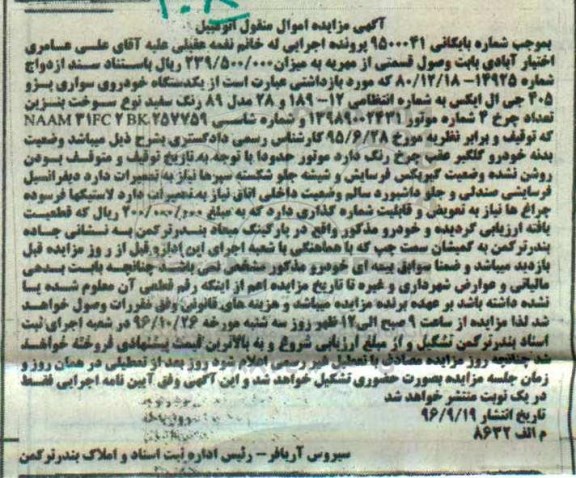 آگهی مزایده اموال منقول اتومبیل
بموجب شماره بایگانی ۹۵۰۰۰۴۱ پرونده اجرایی له خانم نغمه عقیلی علیه آقای علی عامری
اختیار آبادی بابت وصول قسمتی از مهریه به میزان ۲۳۹/۵۰۰/۰۰۰ ریال باستناد سند ازدواج
شماره ۱۴۹۲۵- ۸۰/۱۲/۱۸ که مورد بازداشتی عبارت است از یکدستگاه خودروی سواری پژو
۴۰۵ جی ال ایکس به شماره انتظامی ۱۲- ۱۸۹ و ۲۸ مدل ۸۹ رنگ سفید نوع سوخت بنزین
تعداد چرخ ۴ شماره موتور ۱۳۹۸۹۰۰۲۴۳۱ شماره شاسی NAAM ۳۱FC ۲ BK ۲۵۷۷۵۹
که توقیف و برابر نظریه مورخ ۹۵/۶/۲۸ کارشناس رسمی دادگستری بشرح ذیل میباشد وضعیت
بدنه خودرو گلگیر عقب چرخ رنگ دارد موتور حدودا با توجه به تاریخ توقیف و متوقف بودن
روشن نشده وضعیت گیربکس فرسایش و شیشه جلو شکسته سپرها نیاز به تعمیرات دارد دیفرانسیل
فرسایشی صندلی و جلو داشبورد سالم وضعیت داخلی اتاق نیاز به تعمیرات دارد لاستیکها فرسوده
چراغ ها نیاز به تعویض و قابلیت شماره گذاری دارد که به مبلغ ۲۰۰/۰۰۰/۰۰۰ ریال که قطعیت
یافته ارزیابی گردیده و خودرو مذکور واقع در پارکینگ میعاد بندرترکمن به نشانی جاده
بندرترکمن به گمیشان سمت چپ که با هماهنگی با شعبه اجرای این اداره قبل از روز مزایده قابل
بازدید میباشد و ضمنا سوابق بیمه ای خودرو مذکور مشخص نمی باشد چنانچه بابت بدهی
مالیاتی و عوارض شهرداری و غیره تا تاریخ مزایده اعم از اینکه رقم قطعی آن معلوم شده یا
نشده داشته باشد بر عهده برنده مزایده میباشد و هزینه های قانونی وفق مقررات وصول خواهد
شد لذا مزایده از ساعت ۹ صبح الی ۱۲ ظهر روز سه شنبه مورخه ۹۶/۱۰/۲۶ در شعبه اجرای ثبت
اسناد بندرترکمن تشکیل و از مبلغ ارزیابی شروع و به بالاترین قیمت پیشنهادی فروخته خواهد
شد چنانچه روز مزایده مصادف با تعطیل غیر رسمی اعلام شود روز بعد از تعطیلی در همان روز و
زمان جلسه مزایده بصورت حضوری تشکیل خواهد شد و این آگهی وفق آیین نامه اجرایی فقط
در یک نوبت منتشر خواهد شد
تاریخ انتشار ۹۶/۹/۱۹
م الف ۸۶۳۲
سیروس آریافر – رئیس اداره ثبت اسناد و املاک بندرترکمن